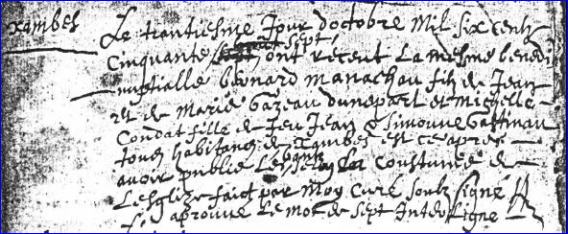 xambes
Le trantiesme Jour doctobre Mil six centz
Cinquante sept, ont receut La mesme benedi
nuptialle bernard manachau filz de Jean
et de Marie Gazeau dunepart et Michelle
Condat fille de feu Jean & Simonne
tous habitans de Xambes et ce apres
avoir publié Les bans selon La coustume de
Lesglize faict par Moy Curé soubz signé
aprouve Le mot de sept Inter Ligne